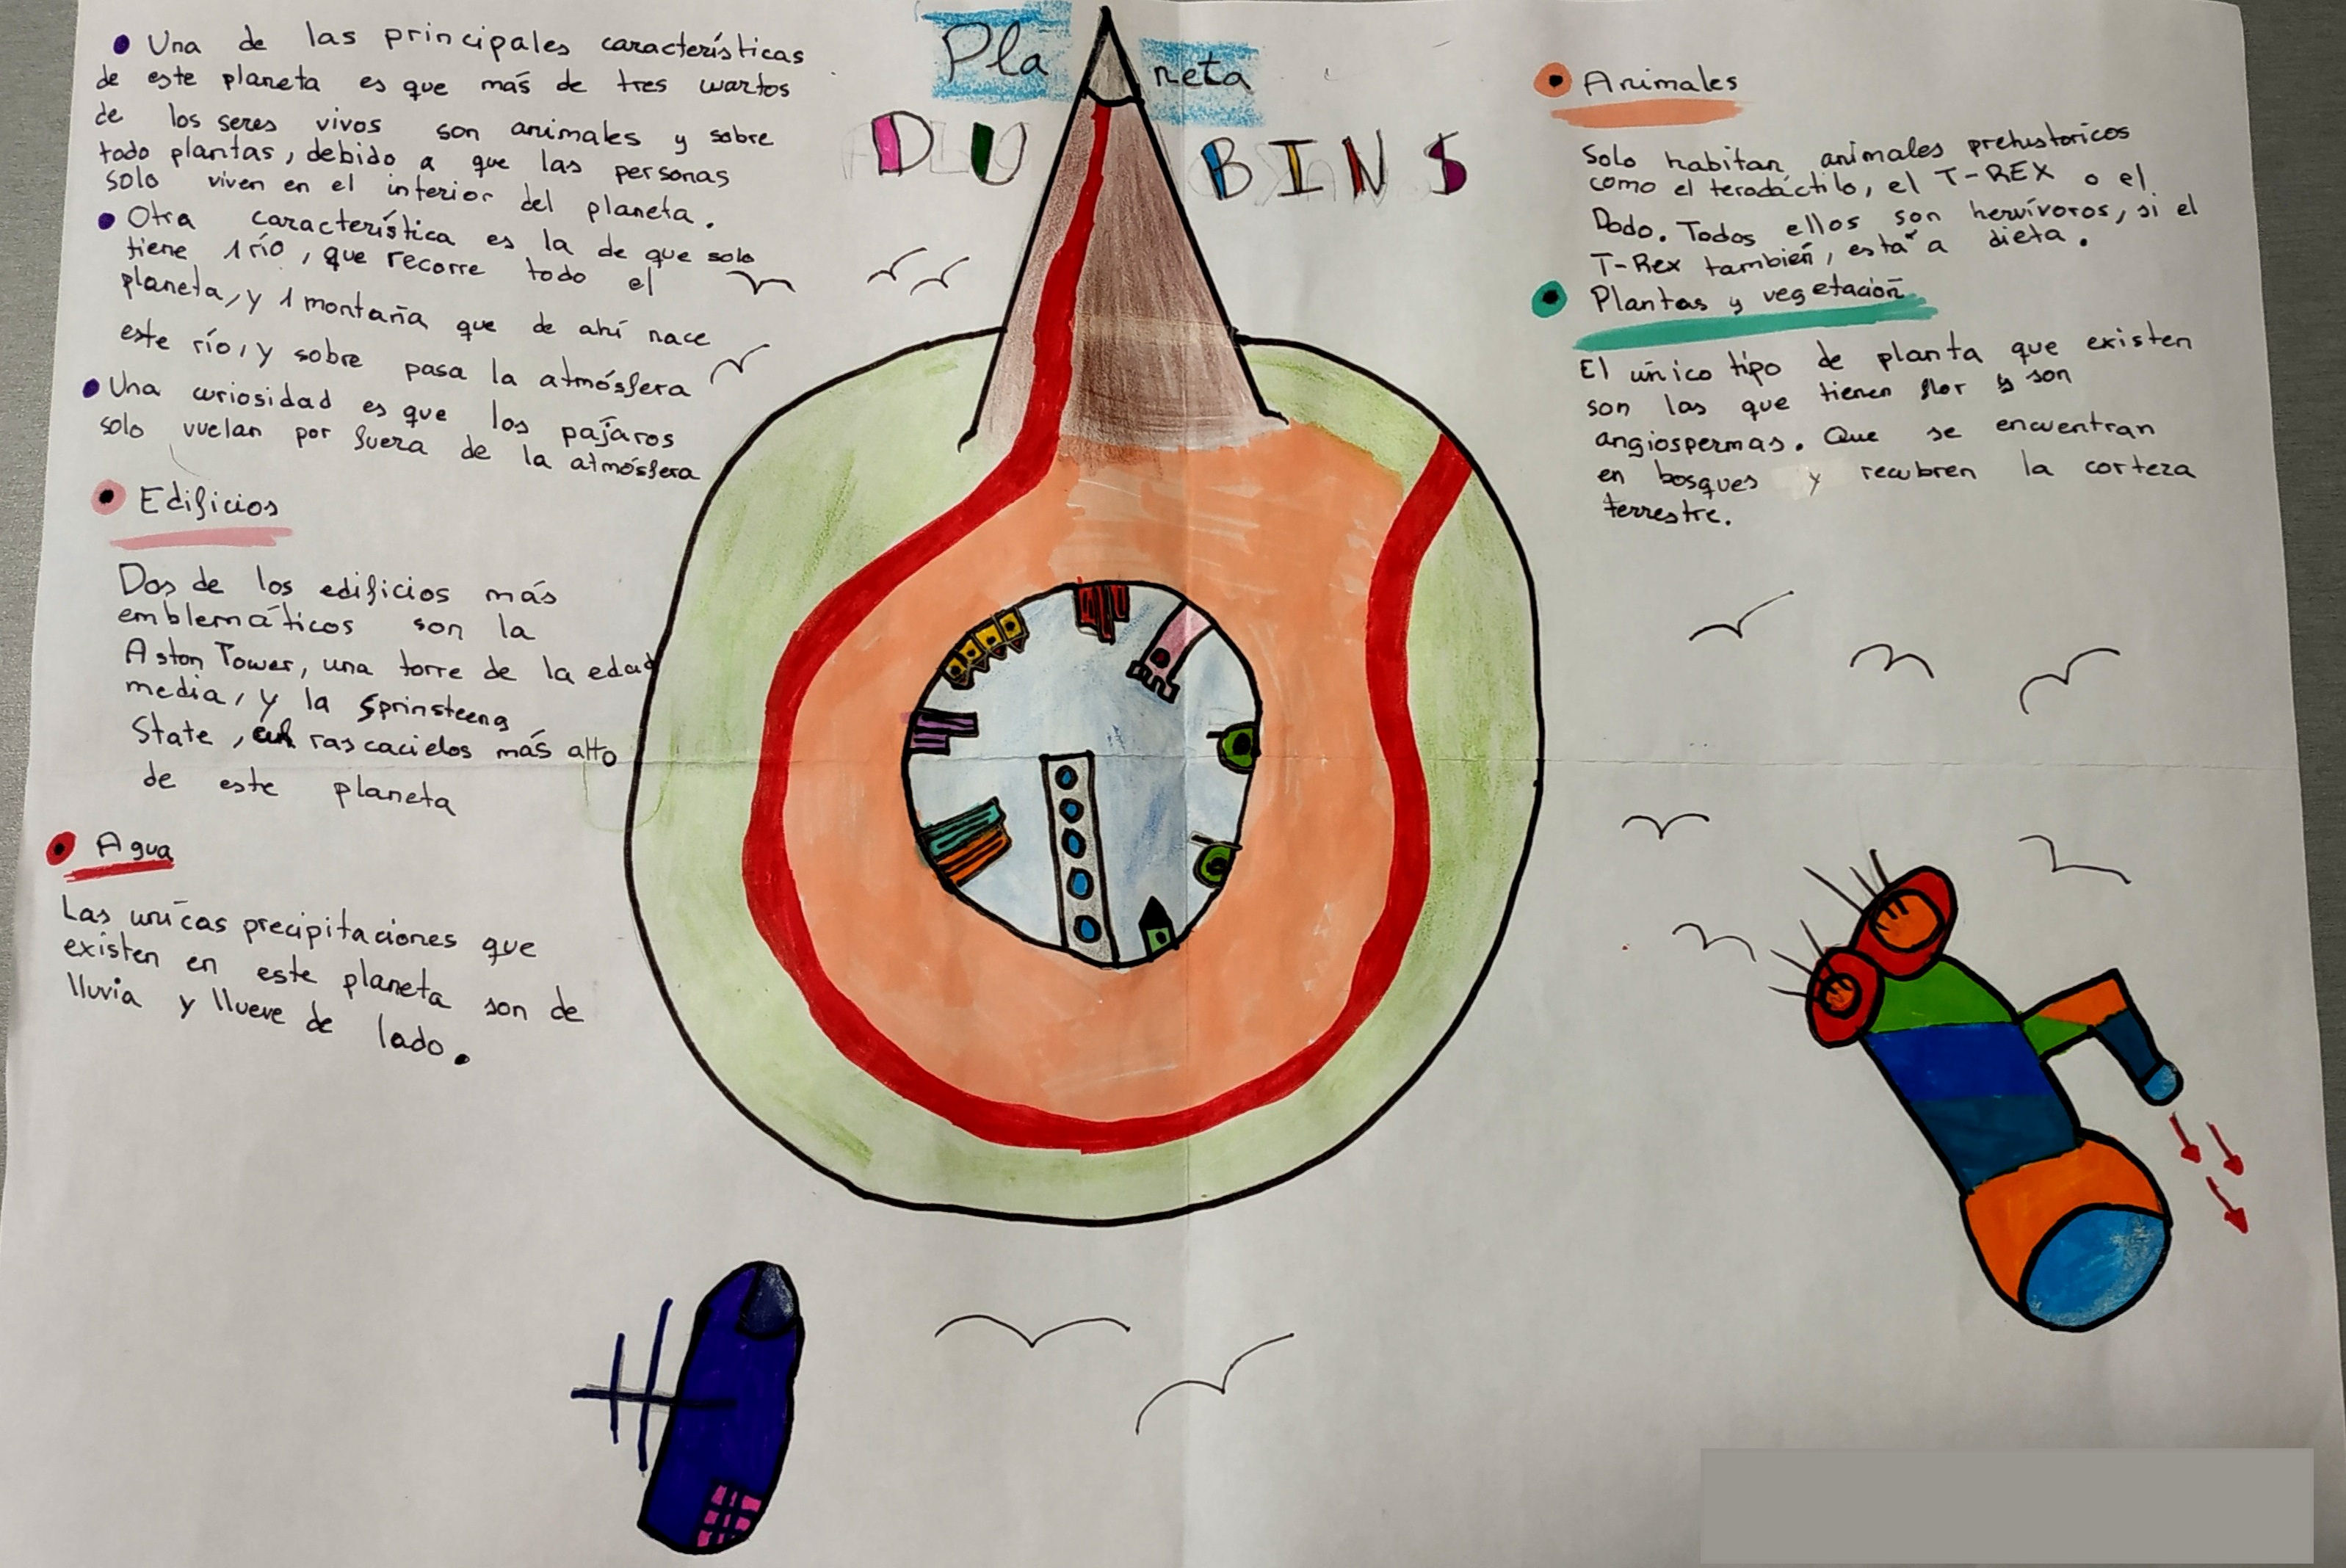 Pla neta
DU BINS
• Una de las principales características
de este planeta es que más de tres wartos
de los seres vivos son animales y sobre
todo plantas, debido a que las personas
solo viven en el interior del planeta.
• Otra característica es la de que solo
tiene 1 río, que recorre todo el
planeta, y 1 montaña que de ahí nace
este río, y sobre pasa la atmósfera
• Una curiosidad es que los pájaros
solo vuelan por fuera de la atmósfera
• Edificios
Dos de los edificios más
emblemáticos son la
Aston Tower, una torre de la edad
media, y la Sprinsteeng
State, un rascacielos más alto
de este planeta
• Agua
Las unícas precipitaciones que
existen en este planeta son de
lluvia y llueve de lado.
• Animales
Solo habitan animales prehistoricos
como el terodáctilo, el T-REX o el
Dodo. Todos ellos son hervívoros, si el
T-Rex también, está a dieta.
• Plantas y vegetación
El único tipo de planta que existen
son las que tienen flor y son
angiospermas. Que se encuentran
en bosques y recubren la corteza
terrestre.